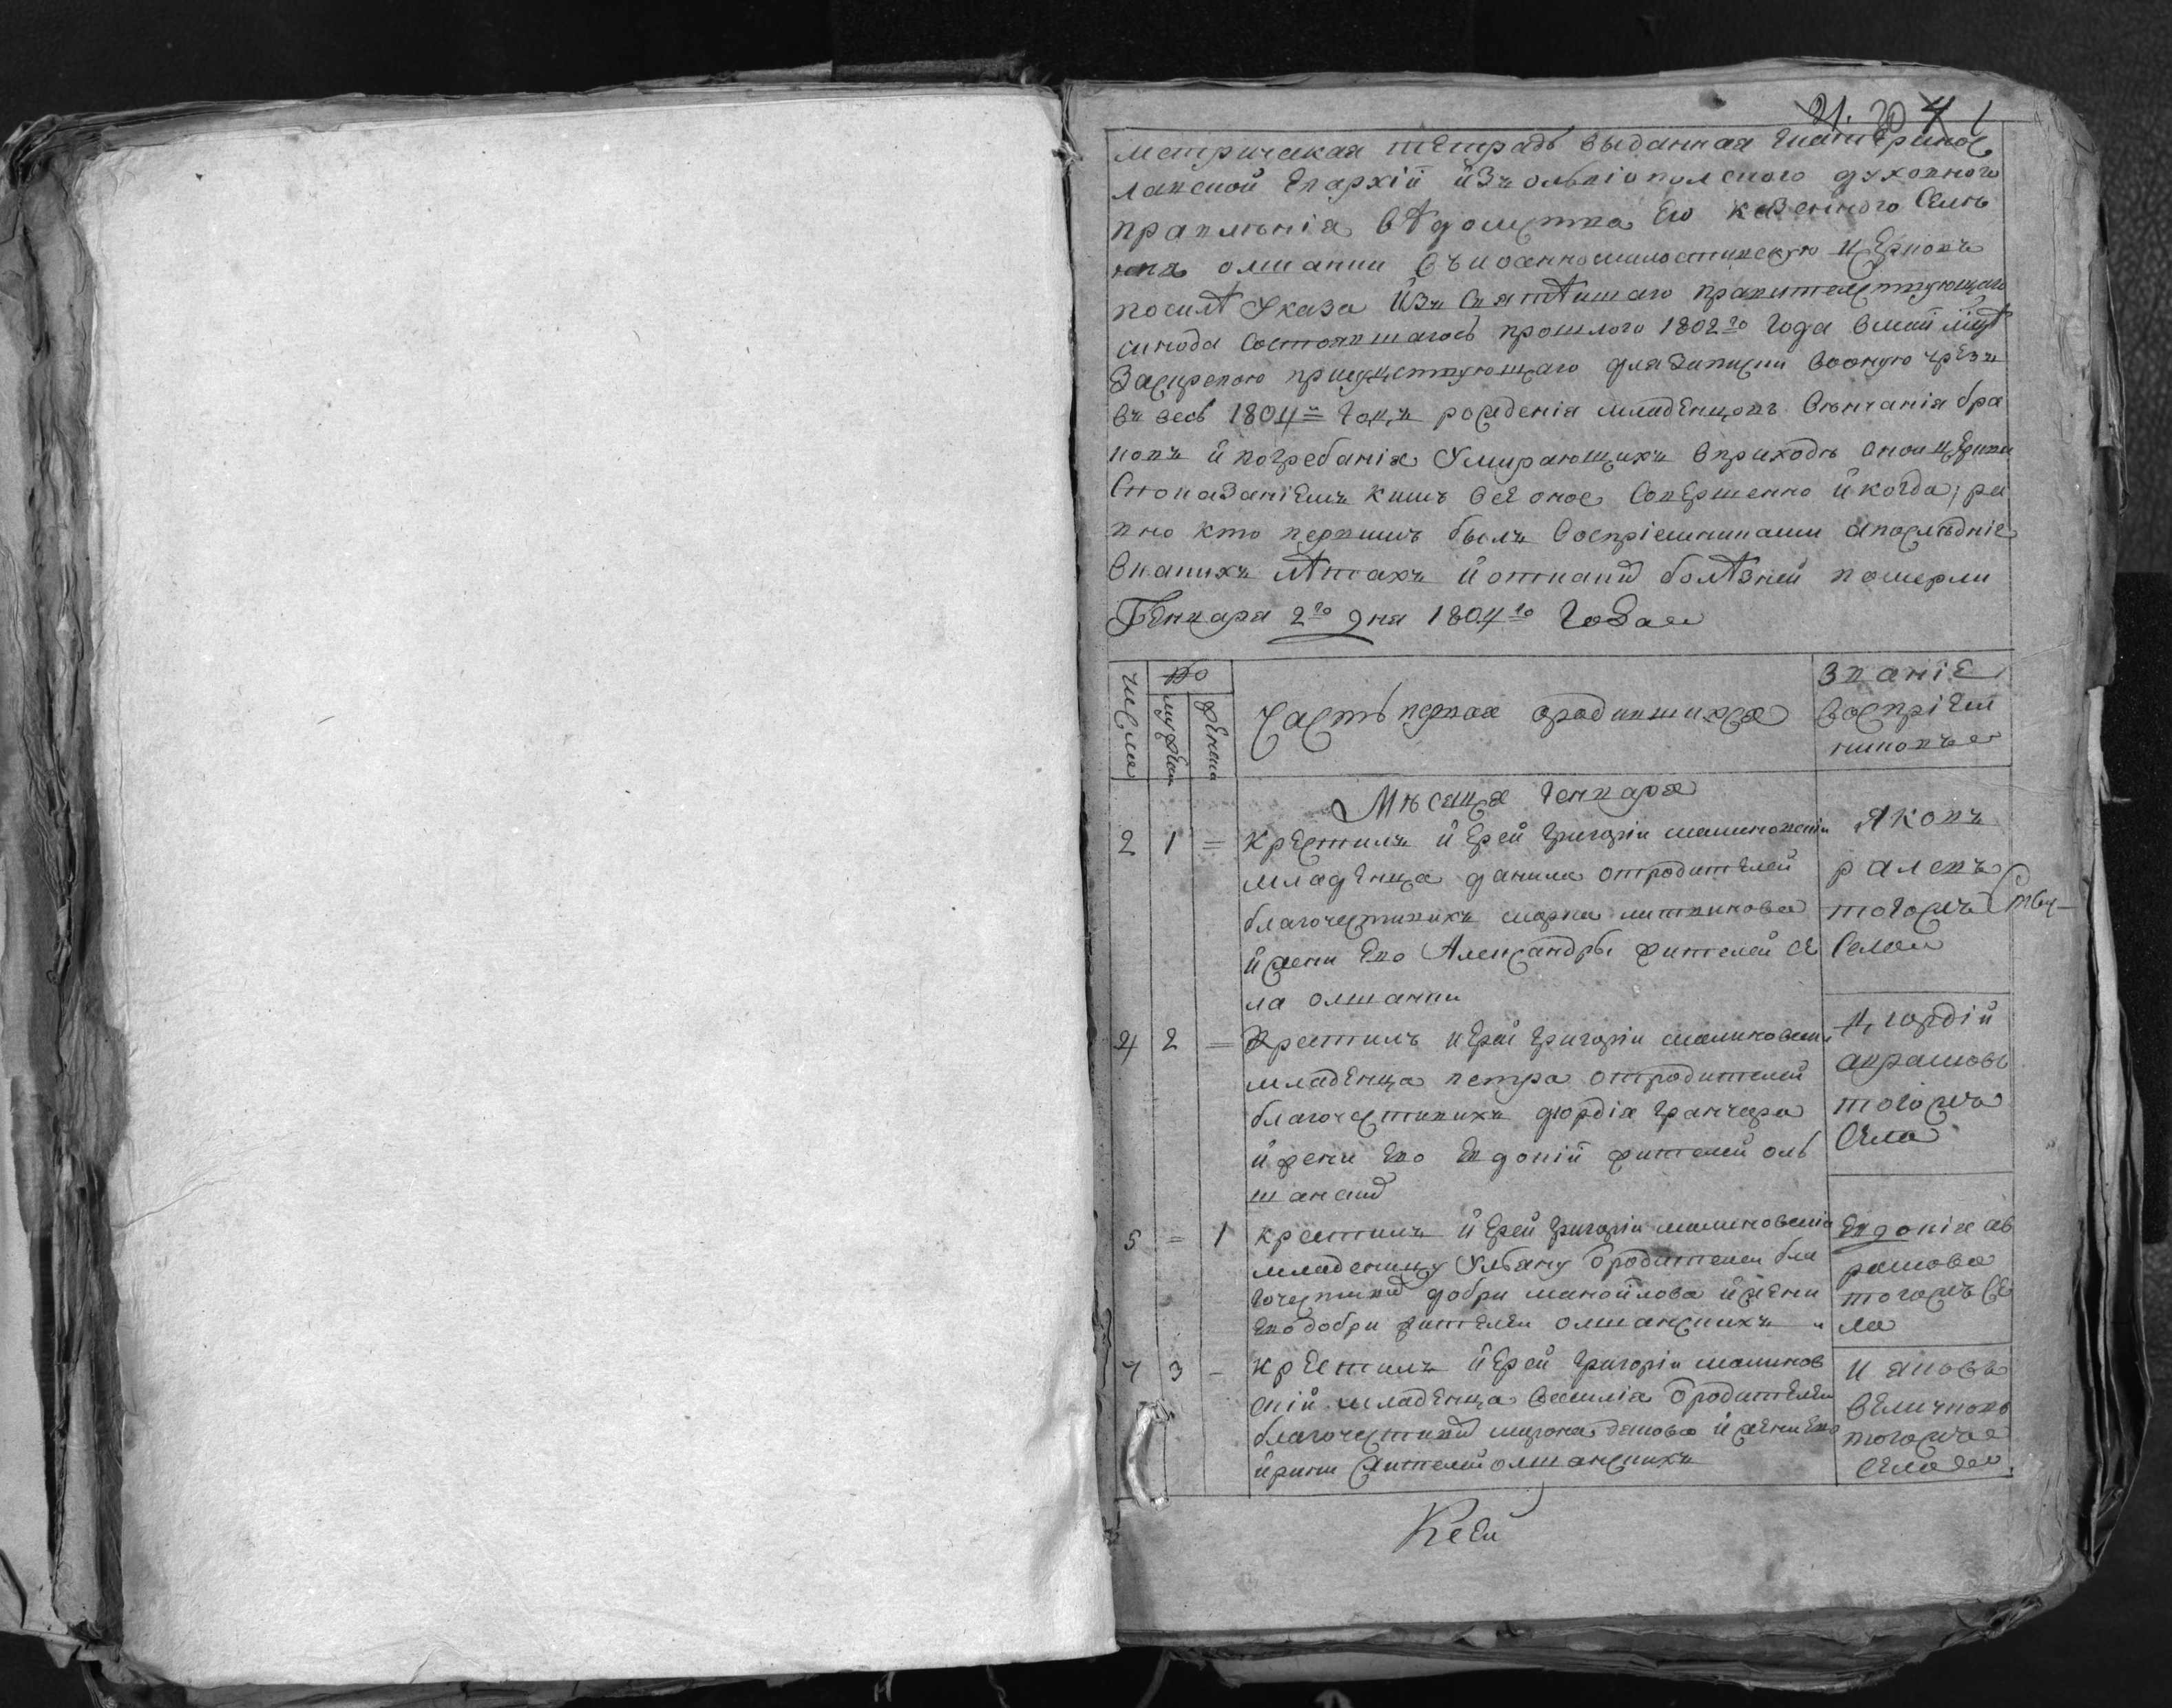 21. 20 4 1
Метрическая тетрадь выданная Екатеринос
лавской Епархіи изъ ольвіопольского духовного
правленія вѣдомства его казенного селе
нія олшанки въ иоанномилостивскую церковъ
посилѣ указа изъ святѣйшаго правителствующаго
синода состоявшагось прошлого 1802го года
присудствующаго для записки во оную чрезъ
въ весь 1804й годъ рожденія младенцовъ венчанія бра
ковъ и погребанія умирающихъ в приходѣ оной церкви
с показаніемъ кимъ всё оное совершенно и когда; ра
вно кто первимъ былъ восприемниками а последніе
в какихъ лѣтахъ и от какой болѣзней померли
Генваря 2го дня 1804го года
числа
мужеска
женска
Часть первая о родившихся
Звание
восприем
никовъ
Мѣсяца Генваря
2 1 = крестилъ иерей григорій малиновскій
младенца данила от родителей
благочестивихъ марка литвинова
и жени его Александры жителей се
ла олшанки
Яковъ
ралевъ
тогожъ
села
4 2 = крестилъ иерей григорій малиновскій
младенца петра от родителей
благочестивихъ гюрдія гранчара
и жени его евдокіи жителей оль
шанки
гюрдій
аврамовъ
тогожъ
села
5 = 1 крестилъ иерей григорій малиновскій
младеницу Улияну о родителей бла
гочестивій добри манойлова и жени
его добри жителей олшанскихъ
Евдокія ав
рамова
тогожъ се
ла
7 3 - крестилъ иерей григорій малинов
скій младенца василія о родителей
благочестивій мирона и жени его
ирини жителей олшанскихъ
величковъ
тогожъ
села